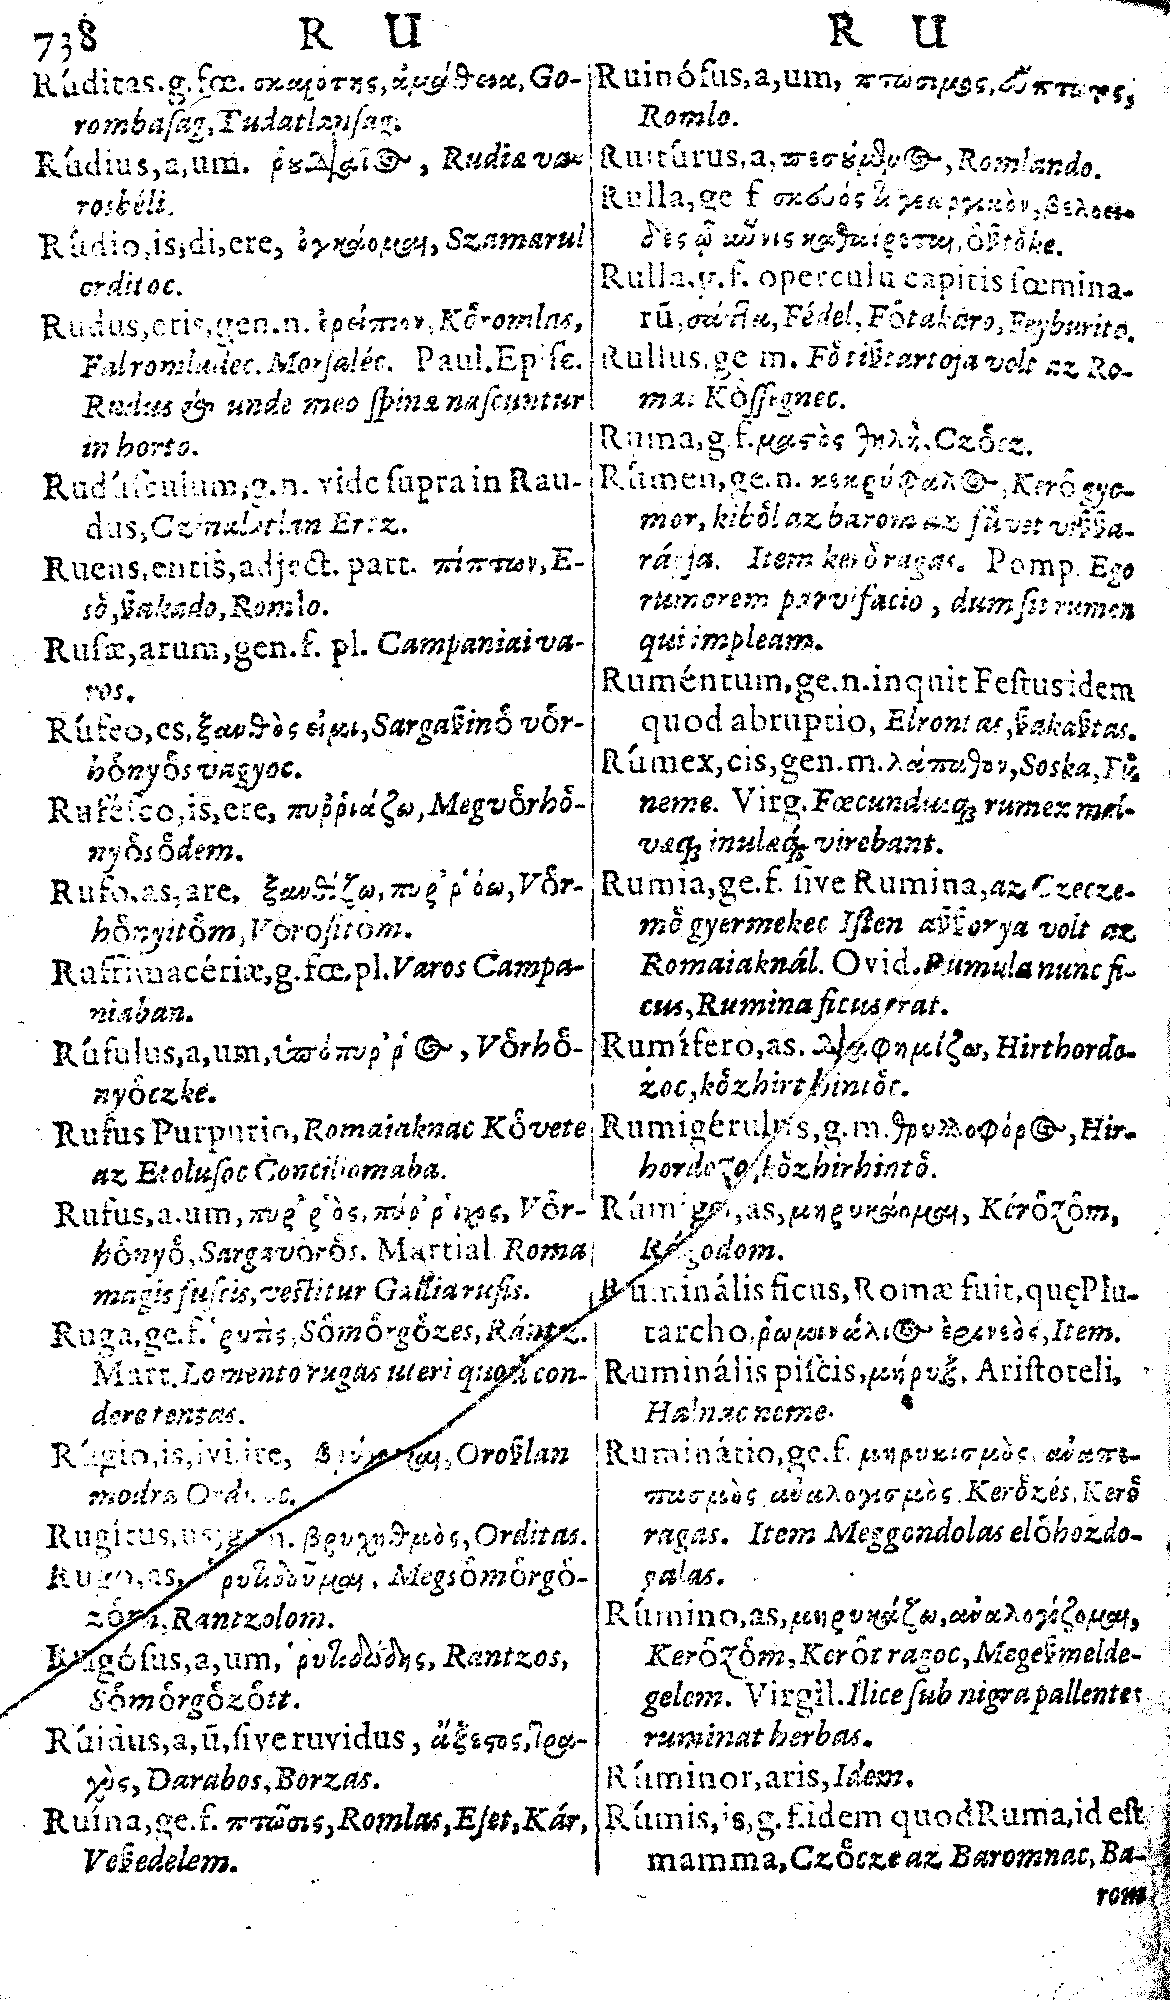 738 R U R U
Rúditas.g.fœ. σκαιότης, Go-
rombaſag, Tudatlanſag.
Rúdius, a, um. Rudia va-
rosbéli.
Rúdio, is, di, ere, ὀγκάομαι, Szamarul
orditoc.
Rudus, eris, gen. n. ἐρείπιον, Kőromlas,
Falromladec. Morſaléc. Paul. Epiſc.
Rudus & unde meo ſpina naſcuntur
in horto.
Rudúſculum, g. n. vide ſupra in Rau-
dus, Czinalatlan Ertz.
Ruens, entis, adject. part. πίπτων, E-
ső, űakado, Romlo.
Rufæ, arum, gen. f. pl. Campaniai va-
ros.
Rúfeo, es, ξανθός εἰμι, Sargaűinő vőr-
hőnyős vagyoc.
Rufeſco, is, ere, πυῤῥιάζω, Megvőrhő-
nyősődem.
Rufo, as, are, ξανθίζω, πυῤῥόω, Vőr-
hőnyitőm, Vőroſitom.
Ruffrimacériæ, g. fœ. pl. Varos Campa-
niaban.
Rúfulus, a, um, ὑπόπυῤῥος, Vőrhő-
nyőczke.
Rufus Purpurio, Romaiaknac Kővete
az Etoluſoc Conciliomaba.
Rufus, a. um, πυῤῥὸς, πύῤῥιχος, Vőr-
hőnyő, Sargavőrős. Martial. Roma
magis fuſcis, veſtitur Gallia rufis.
Ruga, ge. f. ῥυτὶς, Sőmőrgőzes, Rántz.
Mart. Lomento rugas uteri quod con-
dere tentas.
Rúgio, is, ivi, ire, Oroűlan
modra
Rugitus, us, g. m. βρυχηθμὸς, Orditas.
Rugo, as, ῥυτιδοῦμαι, Megsőmőrgő-
zőm, Rantzolom.
Rugóſus, a, um, ῥυτιδώδης, Rantzos,
Sőmőrgőzőtt.
Rúidus, a, ũ, ſive ruvidus, ἄξεστος, τρα-
χὺς, Darabos, Borzas.
Ruína, ge. f. πτῶσις, Romlas, Eſet, Kár,
Veűedelem.
Ruinóſus, a, um, πτώσιμος,
Romlo.
Ruitúrus, a, πεσούμενος, Romlando.
Rulla, ge f
őűtőke.
Rulla, g. f. operculũ capitis fœmina-
rũ, Fédel, Főtakáro, Feyburito.
Rullus, ge m. Főtiűtartoja volt az Ro-
mai Kőſſegnec.
Ruma, g. f. μαστὸς θηλὴ, Czőcz.
Rúmen, ge. n. κεκρύφαλος, Kerő gyo-
mor, kiből az barom az fűvet
Item kerőragas. Pomp. Ego
rumorem parvifacio, dum ſit rumen
qui impleam.
Ruméntum, ge. n. inquit Feſtus idem
quod abruptio, Elrontas, űakaűtas.
Rúmex, cis, gen. m. λάπαθον, Soska, Fű
neme. Virg. Fœcunduſq; rumex mal-
væq; inulæq; virebant.
Rumia, ge. f. ſive Rumina, az Czecze-
mő gyermekec Iſten aűűorya volt az
Romaiaknál. Ovid. Rumula nunc fi-
cus, Rumina ficus erat.
Rumífero, as. διαφημίζω, Hirt hordo-
zoc, kőzhirt hintőc.
Rumigérulus, g. m. θρυλλοφόρος, Hir-
hordozo, kőzhirhintő.
Rúmigo, as, μηρυκάομαι, Kérőzőm,
Rágodom.
Ruminális ficus, Romæ fuit, quę Plu-
tarcho, ῥωμινάλιος ἐρινεὸς, Item.
Ruminális piſcis, μήρυξ. Ariſtoteli,
Halnac neme.
Ruminátio, ge. f. μηρυκισμὸς, ἀναπε-
πασμὸς, ἀναλογισμὸς. Kerőzés, Kerő
ragas. Item Meggondolas előhozdo-
galas.
Rúmino, as, μηρυκάζω, ἀναλογίζομαι,
Kerőzőm, Kerőt ragoc, Megeűmelde-
gelem. Virgil. Ilice ſub nigra pallentes
ruminat herbas.
Rúminor, aris, Idem.
Rúmis, is, g. f. idem quod Ruma, id eſt
mamma, Czőcze az Baromnac, Ba-
rom